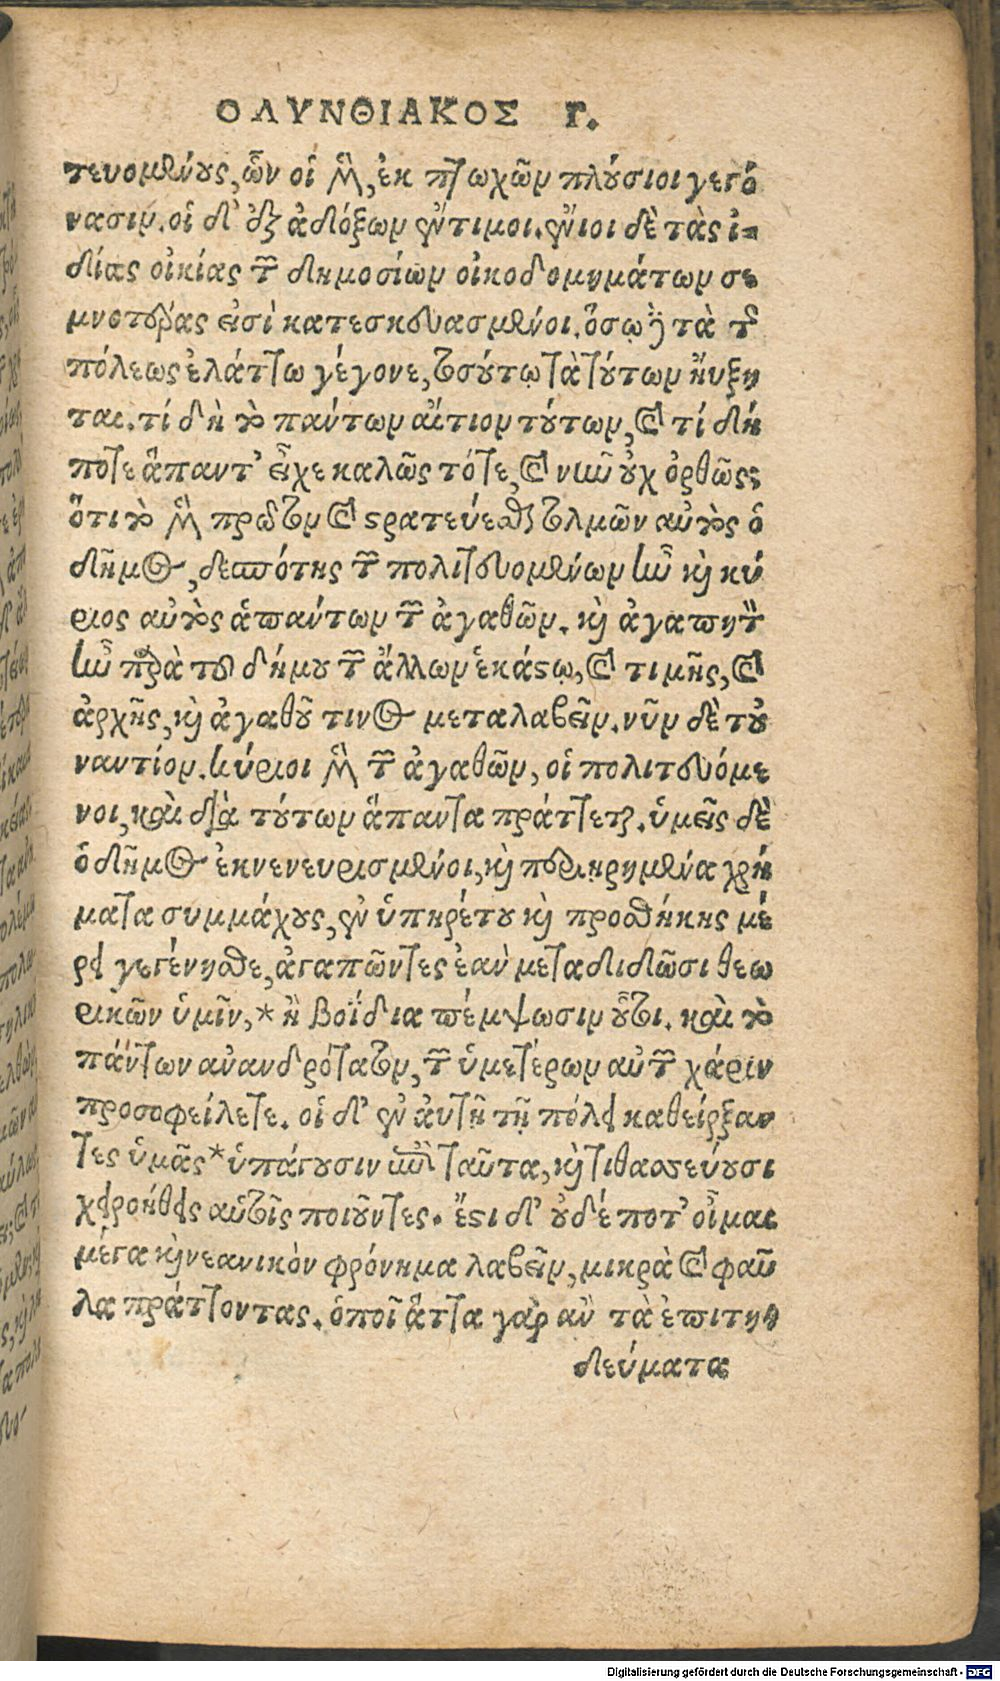 ΟΛΥΝΘΙΑΚΟΣ Γ.
τευομένους, ὧν οἱ μὲν, ἐκ πτωχῶν πλούσιοι γεγό
νασιν. οἱ δ' ἐξ ἀδόξων ἔντιμοι. ἔνιοι δὲ τὰς ἰ-
δίας οἰκίας τῶν δημοσίων οἰκοδομημάτων σε
μνοτέρας εἰσὶ κατεσκευασμένοι. ὅσῳ δὲ τὰ τῆς
πόλεως ἐλάττω γέγονε, τοσούτῳ τὰ τούτων ηὔξη
ται. τί δὴ τὸ πάντων αἴτιον τούτων, καὶ τί δή
ποτε ἅπαντ' εἶχε καλῶς τότε, καὶ νῦν οὐχ ὀρθῶς;
ὅτι τὸ μὲν πρῶτον καὶ στρατεύεσθαι τολμῶν αὐτὸς ὁ
δῆμος, δεσπότης τῶν πολιτευομένων ἦν καὶ κύ
ριος αὐτὸς ἁπάντων τῶν ἀγαθῶν. καὶ ἀγαπητὸν
ἦν παρὰ τοῦ δήμου τῶν ἄλλων ἑκάστῳ, καὶ τιμῆς, καὶ
ἀρχῆς, καὶ ἀγαθοῦ τινος μεταλαβεῖν. νῦν δὲ τοὐ
ναντίον. κύριοι μὲν τῶν ἀγαθῶν, οἱ πολιτευόμε
νοι, καὶ διὰ τούτων ἅπαντα πράττεται. ὑμεῖς δὲ
ὁ δῆμος ἐκνενευρισμένοι, καὶ περιῃρημένα χρή
ματα συμμάχους, ἐν ὑπηρέτου καὶ προσθήκης μέ
ρει γεγένησθε, ἀγαπῶντες ἐὰν μεταδιδῶσι θεω
ρικῶν ὑμῖν, * ἢ βοΐδια πέμψωσιν οὗτοι. καὶ τὸ
πάντων ἀνανδρότατον, τῶν ὑμετέρων αὐτῶν χάριν
προσοφείλετε. οἱ δ' ἐν αὐτῇ τῇ πόλει καθείρξαν
τες ὑμᾶς * ὑπάγουσιν ἐπὶ ταῦτα, καὶ τιθασσεύουσι
χειροήθεις αὑτοῖς ποιοῦντες. ἔστι δ' οὐδέποτ' οἶμαι
μέγα καὶ νεανικὸν φρόνημα λαβεῖν, μικρὰ καὶ φαῦ
λα πράττοντας. ὁποῖ' ἄττα γὰρ ἂν τὰ ἐπιτη
δεύματα
Digitalisierung gefördert durch die Deutsche Forschungsgemeinschaft - DFG